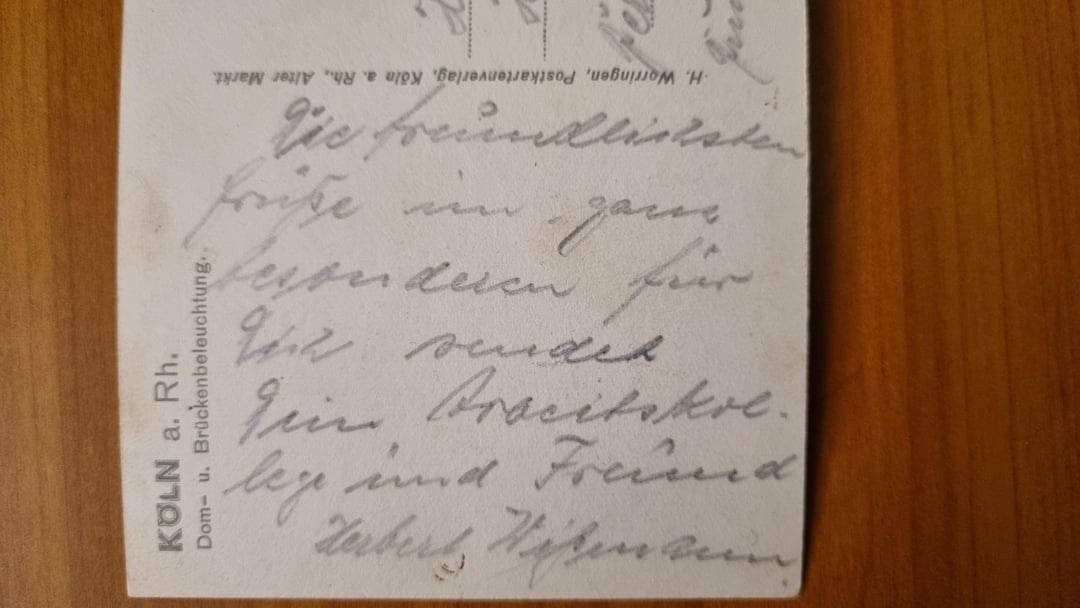 H. Worringen, Postkartenverlag, Köln a. Rh., Alter Markt.
Die freundlichsten
Grüße im ganz
besonderen für
Dich sendet
Dein Arbeitskol-
lege und Freund
Herbert Wißmann.
KÖLN a. Rh.
Dom- u. Brückenbeleuchtung.